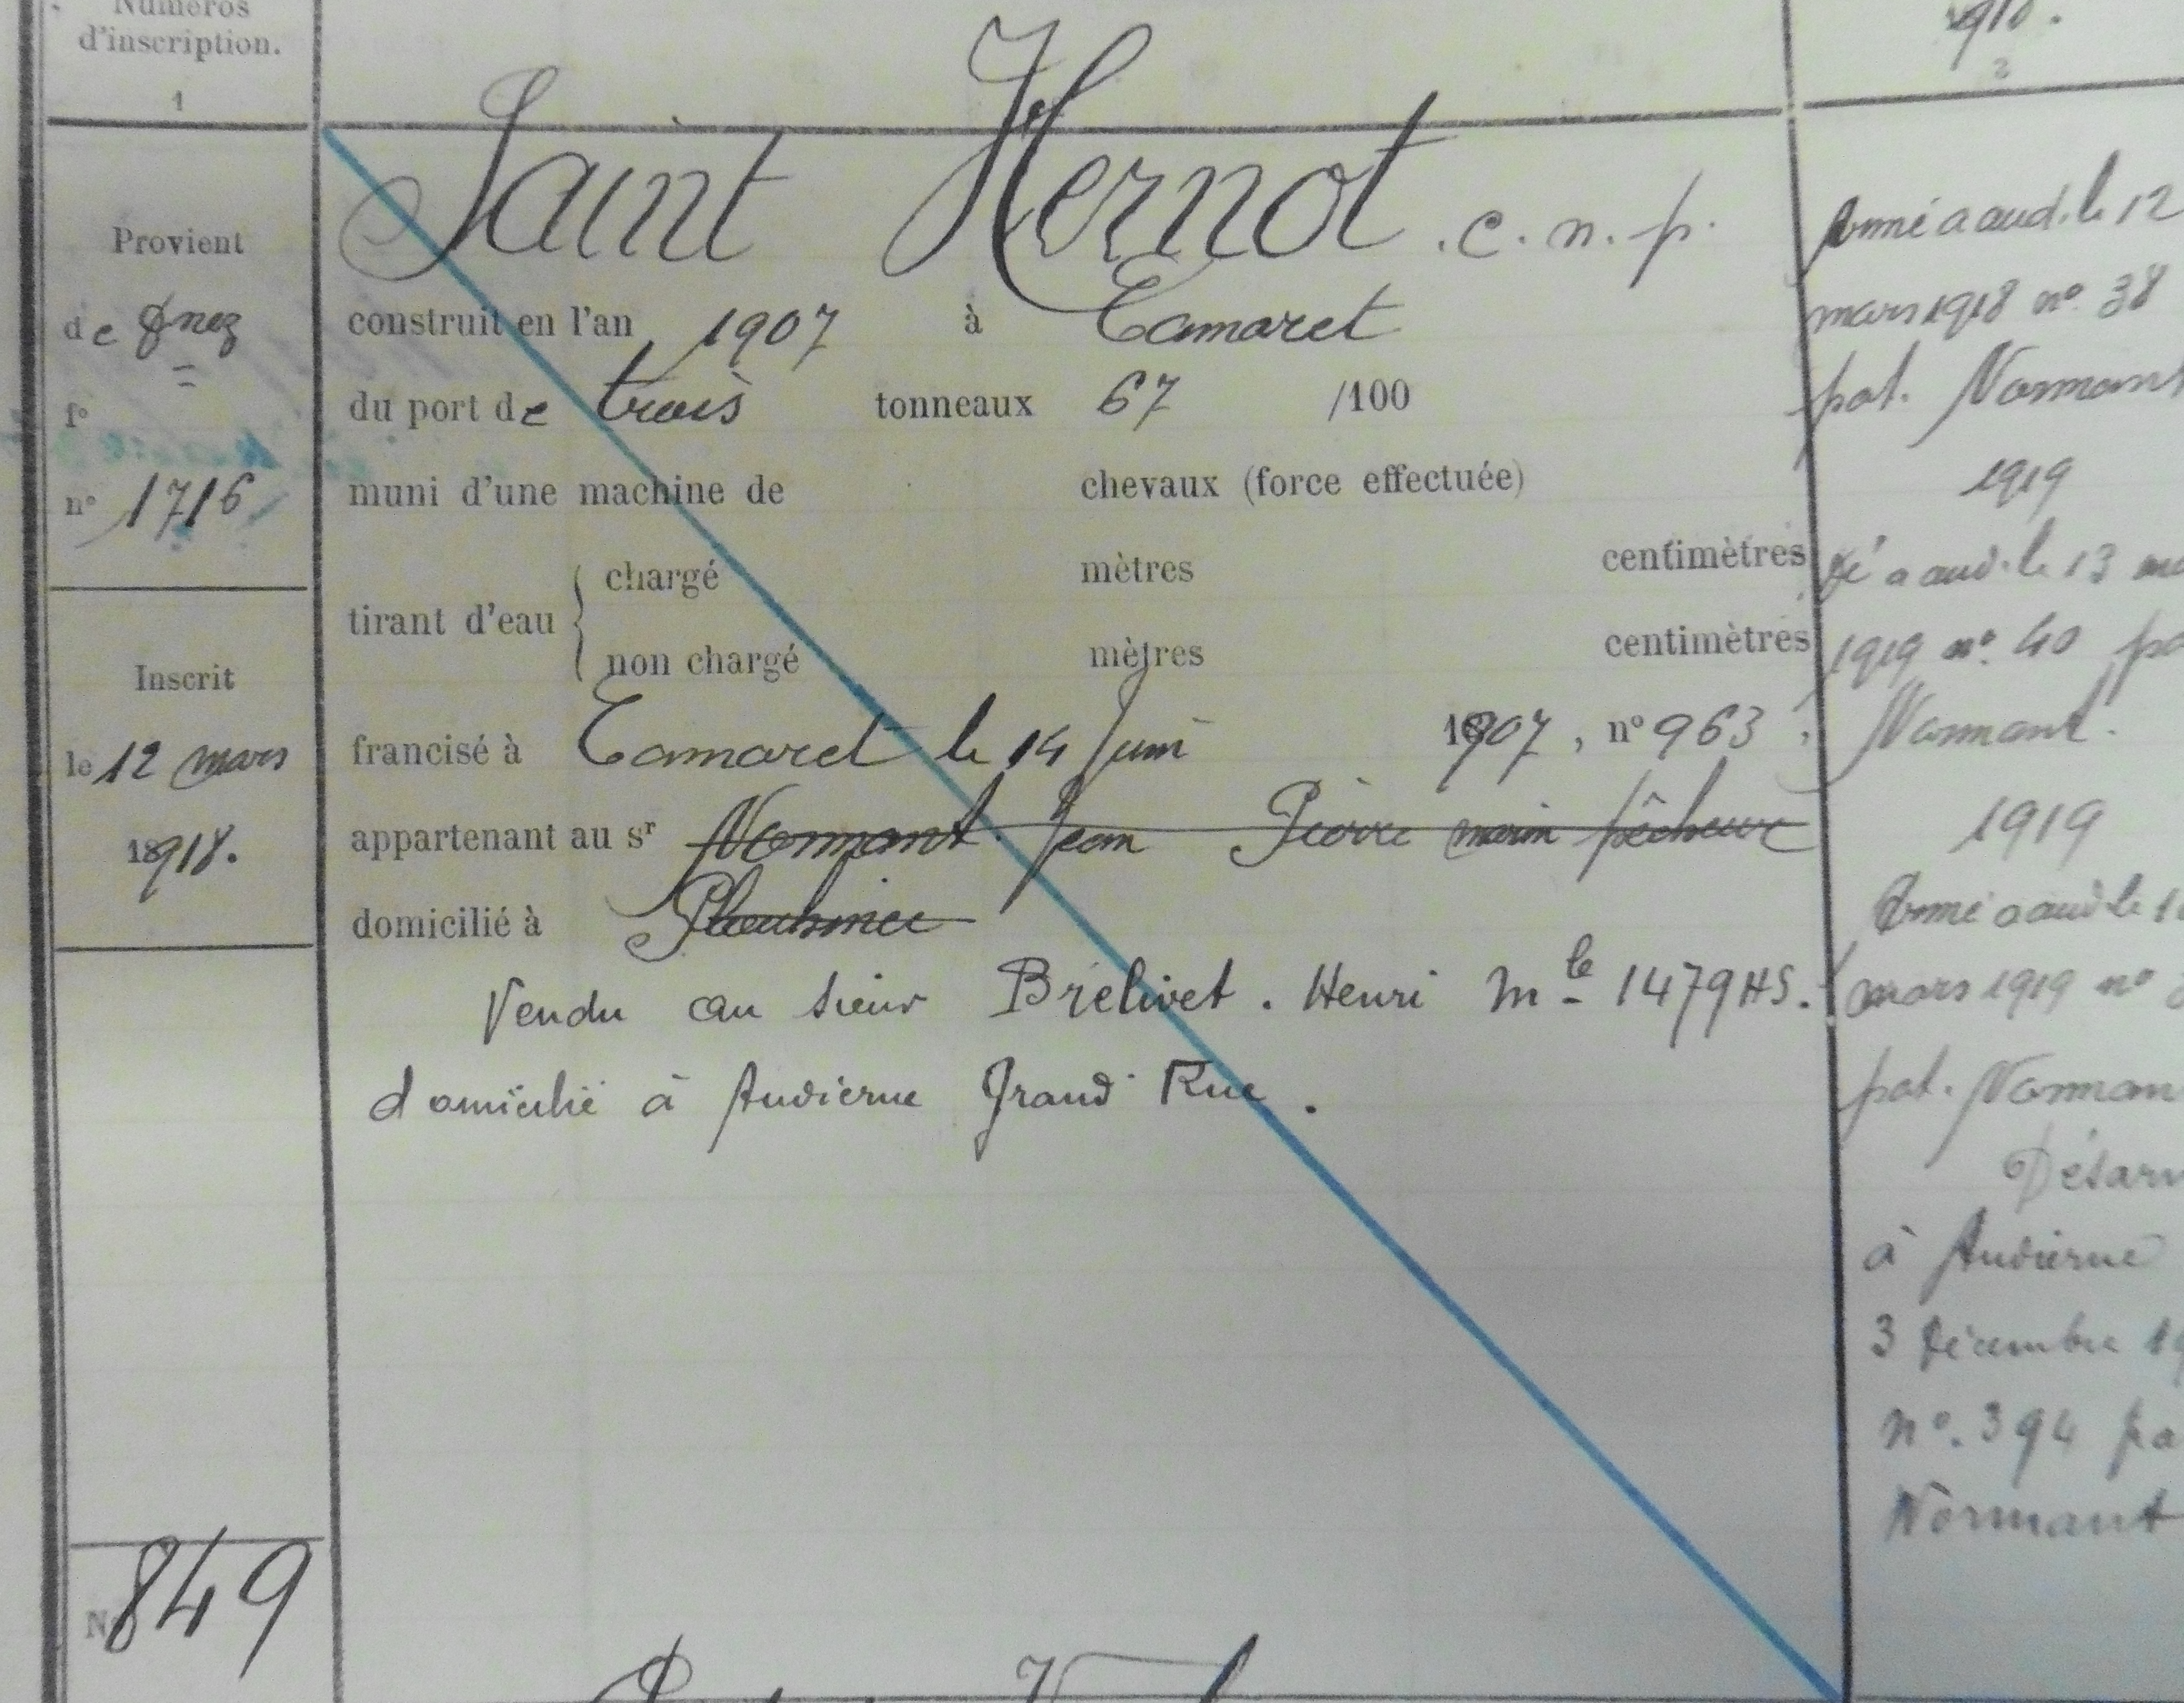 Numéros
d'inscription.
1
1918.
2
Provient
de Dnez
fº
nº 1716
Inscrit
le 12 mars
1918.
Nº 849
Saint Hernot . c. n. p.
construit en l'an 1907 à Camaret
du port de trois tonneaux 67 /100
muni d'une machine de chevaux (force effectuée)
tirant d'eau { chargé mètres centimètres
non chargé mètres centimètres
francisé à Camaret le 14 Juin 1907, nº 963
appartenant au sr Normant Jean Pierre marin pêcheur
domicilié à Plouhinec
Vendu au sieur Brélivet. Henri Mle 1479 HS.
domicilié à Audierne Grand Rue.
Armé a aud. le 12
mars 1918 nº 38
pat. Normant
1919
Dé a aud. le 13 ma
1919 nº 40 pa
Normant.
1919
Armé a aud le 1
mars 1919 nº
pat. Norman
Désarm
à Audierne
3 Décembre 19
nº. 394 pa
Normant